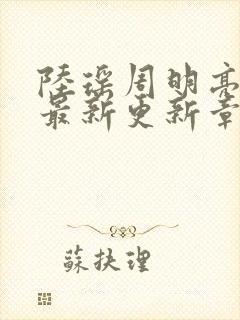 陸瑤周明亮
最新更新章
蘇扶理